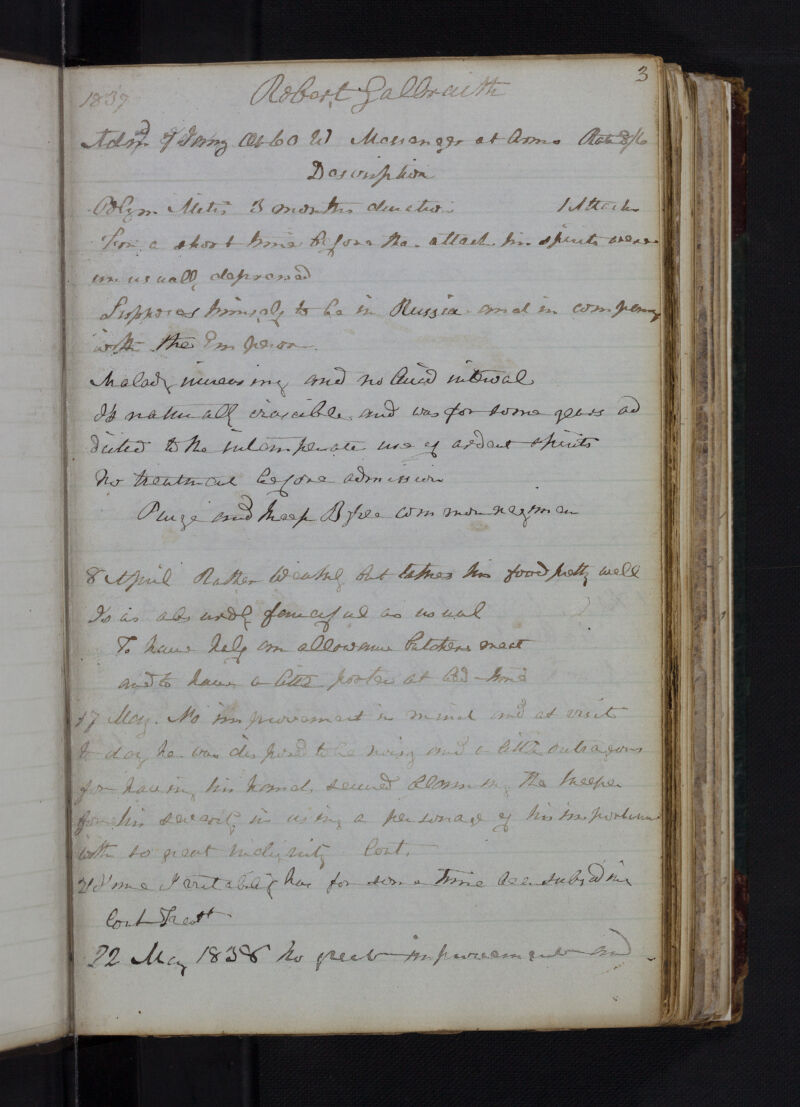 3
1837 Robert Galbraith
Admd 7 Jany Æt 60 W Messenger at Arms Rate 8/6
Description
3 months duration 1 Attack
For a short time before the attack his spirits were
unusually depressed
Supposes himself to be in Russia and in company
with the Emperor
Malady increasing and no lucid interval
Is naturally irascible and was for some years ad
dicted to the intemperate use of ardent spirits
No treatment before admission
Purge and keep common regimen
8 April Rather weakly but takes his food pretty well
Is as absurdly fanciful as usual
To have half an allowance butchers meat
and to have a little porter at bed-time
17 May. No improvement in mind and at visit
to day he was disposed to be noisy and a little outrageous
for having his hands secured blaming the keeper
for his severity in using a personage of his importance
with so great indignity Cont.
21 June Irritability has for some time been subsiding
Cont Treatt
22 May 1838 No great improvement and